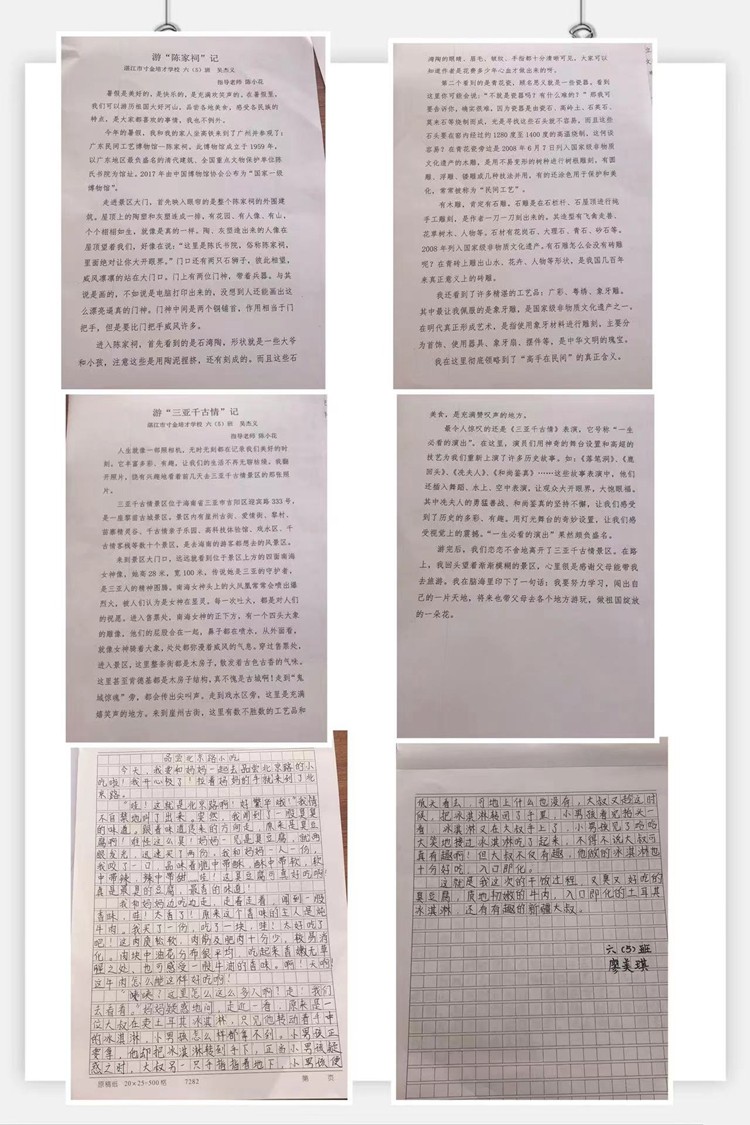 游“陈家祠”记
湛江市寸金培才学校 六（5）班 吴杰义
指导老师 陈小花
暑假是美好的，是快乐的，是充满欢笑声的。在暑假里，
我们可以游历祖国大好河山，品尝各地美食，感受各民族的
特点，是大家都喜欢的事情，我也不例外。
今年的暑假，我和我的家人坐高铁来到了广州并参观了：
广东民间工艺博物馆—陈家祠。此博物馆成立于 1959 年，
以广东地区最负盛名的清代建筑、全国重点文物保护单位陈
氏书院为馆址。2017 年由中国博物馆协会公布为“国家一级
博物馆”。
走进景区大门，首先映入眼帘的是整个陈家祠的外围建
筑。屋顶上的陶塑和灰塑连成一排，有花园、有人像、有山，
个个栩栩如生，就像是真的一样。陶、灰塑造出来的人像在
屋顶望着我们，好像在说：“这里是陈氏书院，俗称陈家祠，
里面绝对让你大开眼界。”门口还有两只石狮子，彼此相望，
威风凛凛的站在大门口。门上有两位门神，带着兵器。与其
说是画的，不如说是电脑打印出来的，没想到人还能画出这
么漂亮逼真的门神。门神中间是两个铜铺首，作用相当于门
把手，但是要比门把手威风许多。
进入陈家祠，首先看到的是石湾陶，形状就是一些大爷
和小孩，注意这些是用陶泥捏挤，还有刻成的。而且这些石
湾陶的眼睛、眉毛、皱纹、手指都十分清晰可见。大家可以
知道作者是花费多少年心血才做出来的呀。
第二个看到的是青花瓷，顾名思义就是一些瓷器。看到
这里你可能会说：“不就是瓷器吗？有什么难的？”那我可
要告诉你，确实很难，因为瓷器是由瓷石、高岭土、石英石、
莫来石等烧制而成，光是寻找这些石头就不容易，而且这些
石头要在窑内经过约 1280 度至 1400 度的高温烧制，这何谈
容易？在青花瓷旁边是 2008 年 6 月 7 日列入国家级非物质
文化遗产的木雕，是用不易变形的树种进行树根雕刻，有圆
雕、浮雕、镂雕或几种技法并用，有的还涂色用于保护和美
化，常常被称为“民间工艺”。
有木雕，肯定有石雕。石雕是在石栏杆、石屋顶进行纯
手工雕刻，是作者一刀一刀刻出来的。其造型有飞禽走兽、
花草树木、人物等。石材有花岗石、大理石、青石、砂石等。
2008 年列入国家级非物质文化遗产。有石雕怎么会没有砖雕
呢？在青砖上雕出山水、花卉、人物等形状，是我国几百年
来真正意义上的砖雕。
我还看到了许多精湛的工艺品：广彩、粤绣、象牙雕。
其中最让我佩服的是象牙雕，是国家级非物质文化遗产之一，
在明代真正形成艺术，是指使用象牙材料进行雕刻，主要分
为首饰、使用器具、象牙扇、摆件等，是中华文明的瑰宝。
我在这里彻底领略到了“高手在民间”的真正含义。
游“三亚千古情”记
湛江市寸金培才学校 六（5）班 吴杰义
指导老师 陈小花
人生就像一部照相机，无时无刻都在记录我们美好的时
刻，它丰富多彩、有趣，让我们的生活不再无聊枯燥。我翻
开照片，饶有兴趣地看着前几天去三亚千古情景区的那张照
片。
三亚千古情景区位于海南省三亚市吉阳区迎宾路 333 号，
是一座黎苗古城景区。景区内有崖州古街、爱情街、黎村、
苗寨精灵谷、千古情亲子乐园、高科技体验馆、戏水区、千
古情客栈等数十个景区，是去海南的游客都想去的风景区。
来到景区大门口，远远就看到位于景区上方的四面南海
女神像，她高 28 米，宽 100 米，传说她是三亚的守护者，
是三亚人的精神图腾。南海女神头上的火凤凰常常会喷出爆
烈火，被人们认为是女神在显灵，每一次吐火，都是对人们
的祝愿。进入售票处，南海女神的正下方，有一个四头大象
的雕像，他们的屁股合在一起，鼻子都在喷水，从外面看，
就像女神骑着大象，处处都弥漫着威风的气息。穿过售票处，
进入景区，这里整条街都是木房子，散发着古色古香的气味。
这里甚至肯德基都是木房子结构，真不愧是古城啊！走到“鬼
城惊魂”旁，都会传出尖叫声，走到戏水区旁，这里是充满
嬉笑声的地方。来到崖州古街，这里有数不胜数的工艺品和
美食，是充满赞叹声的地方。
最令人惊叹的还是《三亚千古情》表演，它号称“一生
必看的演出”。在这里，演员们用神奇的舞台设置和高超的
技艺为我们重新上演了许多历史故事。如：《落笔洞》、《鹿
回头》、《冼夫人》、《和尚鉴真》……这些故事表演中，他们
还插入舞蹈、水上、空中表演，让观众大开眼界，大饱眼福。
其中冼夫人的勇猛善战，和尚鉴真的坚持不懈，让我们感受
到了历史的多彩、有趣。用灯光舞台的奇妙设置，让我们感
受视觉上的震撼。“一生必看的演出”果然颇负盛名。
游完后，我们恋恋不舍地离开了三亚千古情景区。在路
上，我回头望着渐渐模糊的景区，心里很是感谢父母能带我
去旅游。我在脑海里印下了一句话：我要努力学习，闯出自
己的一片天地，将来也带父母去各个地方游玩，做祖国绽放
的一朵花。
品尝北京路小吃
今天，我要和妈妈一起去品尝北京路的小
吃啦！我开心极了！拉着妈妈的手就来到了北
京路。
“哇！这就是北京路啊！好繁华哦！”我情
不自禁地叫了出来。突然，我闻到了一股臭臭
的味道。跟着味道传来的方向走，原来是臭豆
腐啊！难怪这么臭！妈妈一见是臭豆腐，就两
眼发光，迅速买了两份，我和妈妈一人一份，
我咬了一口，品味着脆中带酥，酥中带软，软
中带辣，辣中带甜。哇！这臭豆腐可真好吃啊！
真是最臭的豆腐，最香的味道！
我和妈妈边吃边走，走着走着，闻到一股
香味，哇！太香了！原来这个香味的主人是炖
牛肉。我买了一份，吃了一块，哇！太好吃了
吧！这肉质松软，肉筋及肥肉十分少，极易消
化。肉块中油花分布很平均，吃起来香嫩无单
腥之处，也可感受一股牛油的香味。啊！天啊！
这牛肉怎么能这样好吃啊！
“咦咦？这里怎么这么多人啊？走！我们
去看看。”妈妈疑惑地问，走近一看，原来是一
位大叔在卖土耳其冰淇淋，只见他转动着手中
的冰淇淋，小男孩怎么样都拿不到。小男孩正
要拿，他却把冰淇淋转到手下，正当小男孩疑
惑之时，大叔另一只手指指着地下，小男孩便
低头看去，可地上什么也没有，大叔又趁这时
候，把冰淇淋转回了手里，小男孩看见抬头一
看，冰淇淋又在大叔手上了，小男孩见了哈哈
大笑地接过冰淇淋吃了起来，不得不说大叔可
真有趣啊！但大叔不仅有趣，他做的冰淇淋也
十分好吃，入口即化。
这就是我这次的干饭过程，又臭又好吃的
臭豆腐，质地柔嫩的牛肉，入口即化的土耳其
冰淇淋，还有有趣的新疆大叔。
六（5）班
廖美琪
原稿纸 20×25=500格 7282 第 页